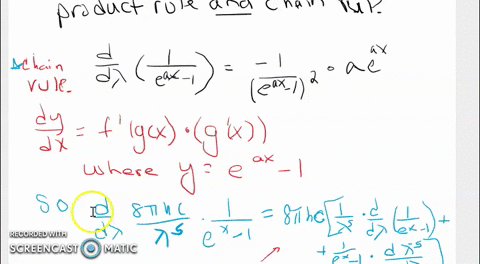 product rule and chain rule.
chain rule. d/dλ (1/(e^{ax}-1)) = -1/(e^{ax}-1)^2 · ae^{ax}
dy/dx = f'(g(x)·(g'(x))
where y = e^{ax} -1
So d/dλ 8πhc/λ^5 · 1/(e^x-1) = 8πhc[1/λ^5 · d/dλ (1/(e^x-1)) +
+ 1/(e^x-1) · dλ^5
RECORDED WITH
SCREENCAST MATIC